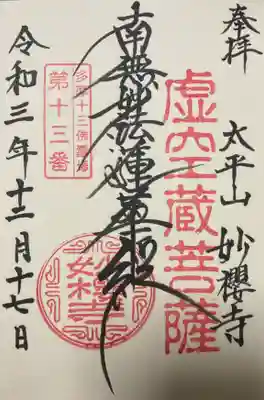 奉拝
太平山 妙櫻寺
虚空蔵菩薩
南無妙法蓮華経
多摩十三佛霊場
第十三番
令和三年十二月十七日